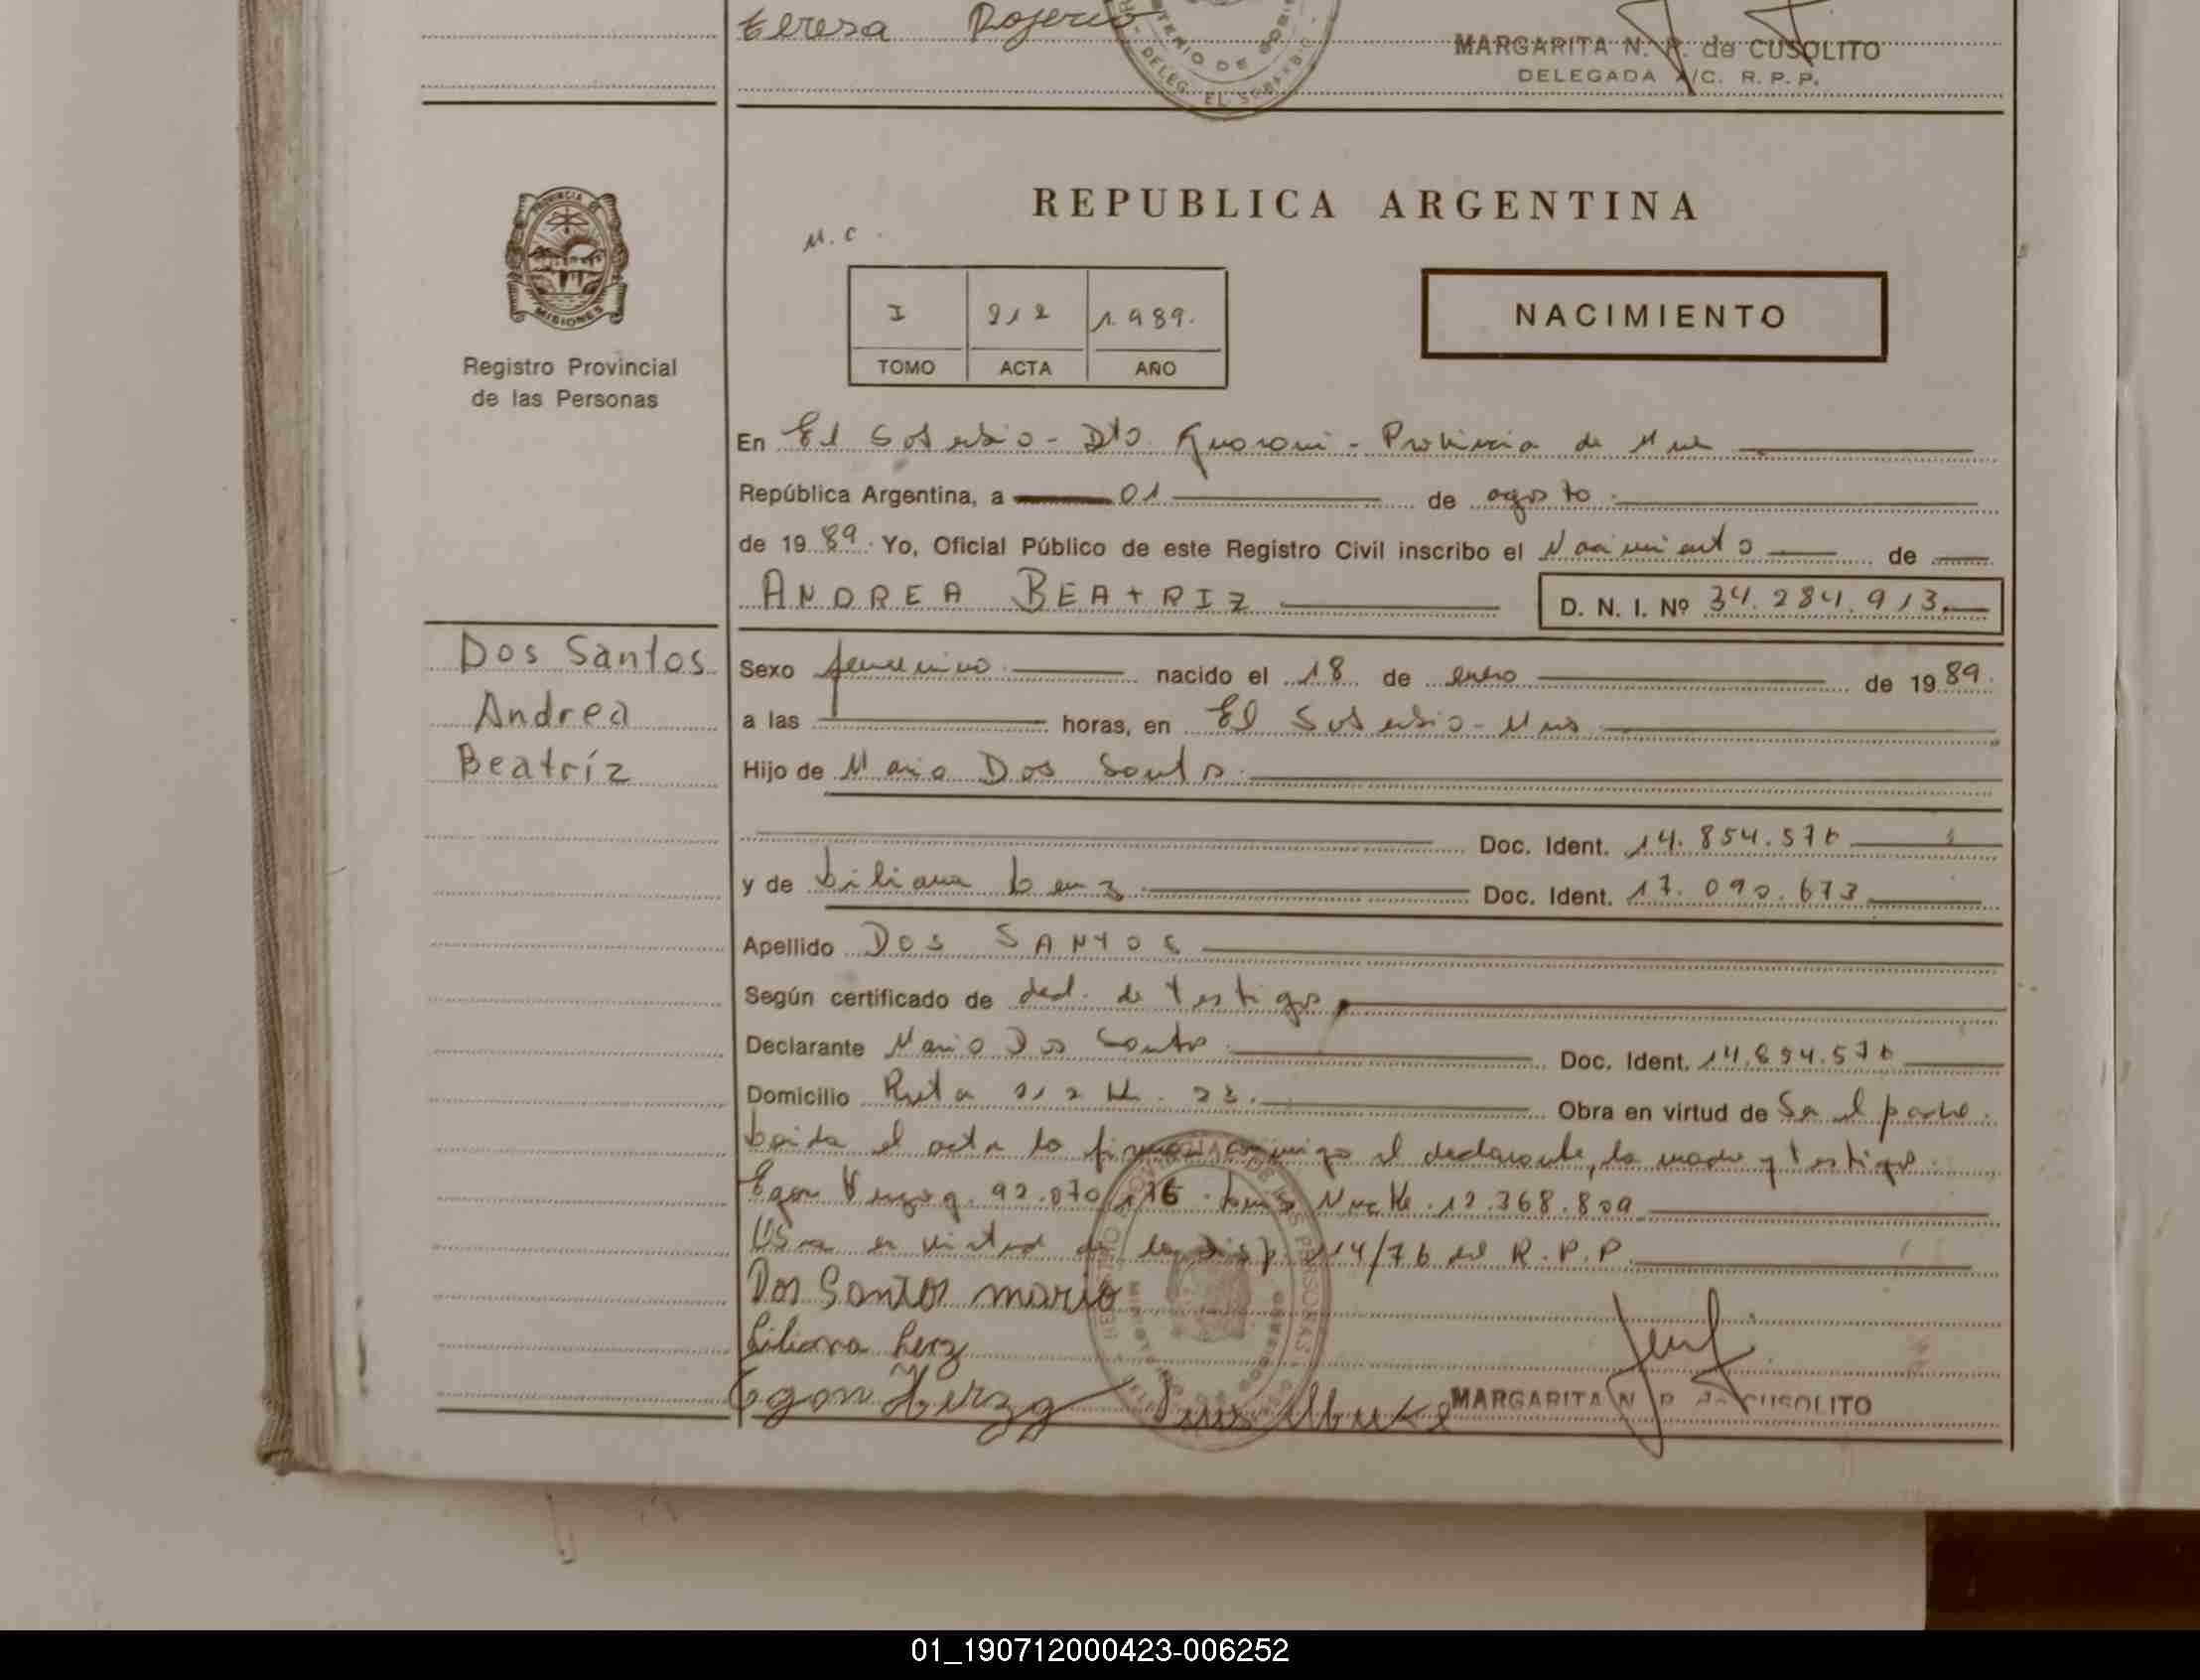 teresa Rogerio
MARGARITA N. P. de CUSOLITO
DELEGADA A/C. R. P. P.
DELEG. EL SOBERBIO
PROVINCIA DE
MISIONES
Registro Provincial
de las Personas
REPUBLICA ARGENTINA
M.C.
I 212 1.989.
TOMO ACTA AÑO
NACIMIENTO
En El Soberbio - Dto. Guarani - Provincia de Mnes
República Argentina, a 01 de agosto
de 19 89 Yo, Oficial Público de este Registro Civil inscribo el Nacimiento de
ANDREA BEATRIZ D. N. I. Nº 34.284.913.
Dos Santos
Andrea
Beatríz
Sexo femenino nacido el 18 de enero de 19 89.
a las horas, en El Soberbio - Mnes
Hijo de Mario Dos Santos
Doc. Ident. 14.854.576
y de Liliana Lenz Doc. Ident. 17.090.673
Apellido DOS SANTOS
Según certificado de decl. de testigos
Declarante Mario Dos Santos Doc. Ident. 14.854.576
Domicilio Ruta 212 K. 23. Obra en virtud de Ser el padre.
Leida el acta la firman conmigo el declarante, la madre y testigos.
Egon 92.070.176 Luis 12.368.809
en virtud de la Disp. 114/76 del R.P.P.
Dos Santos mario
Liliana Lenz
Egon Luis
MARGARITA N. P. de CUSOLITO
01_190712000423-006252